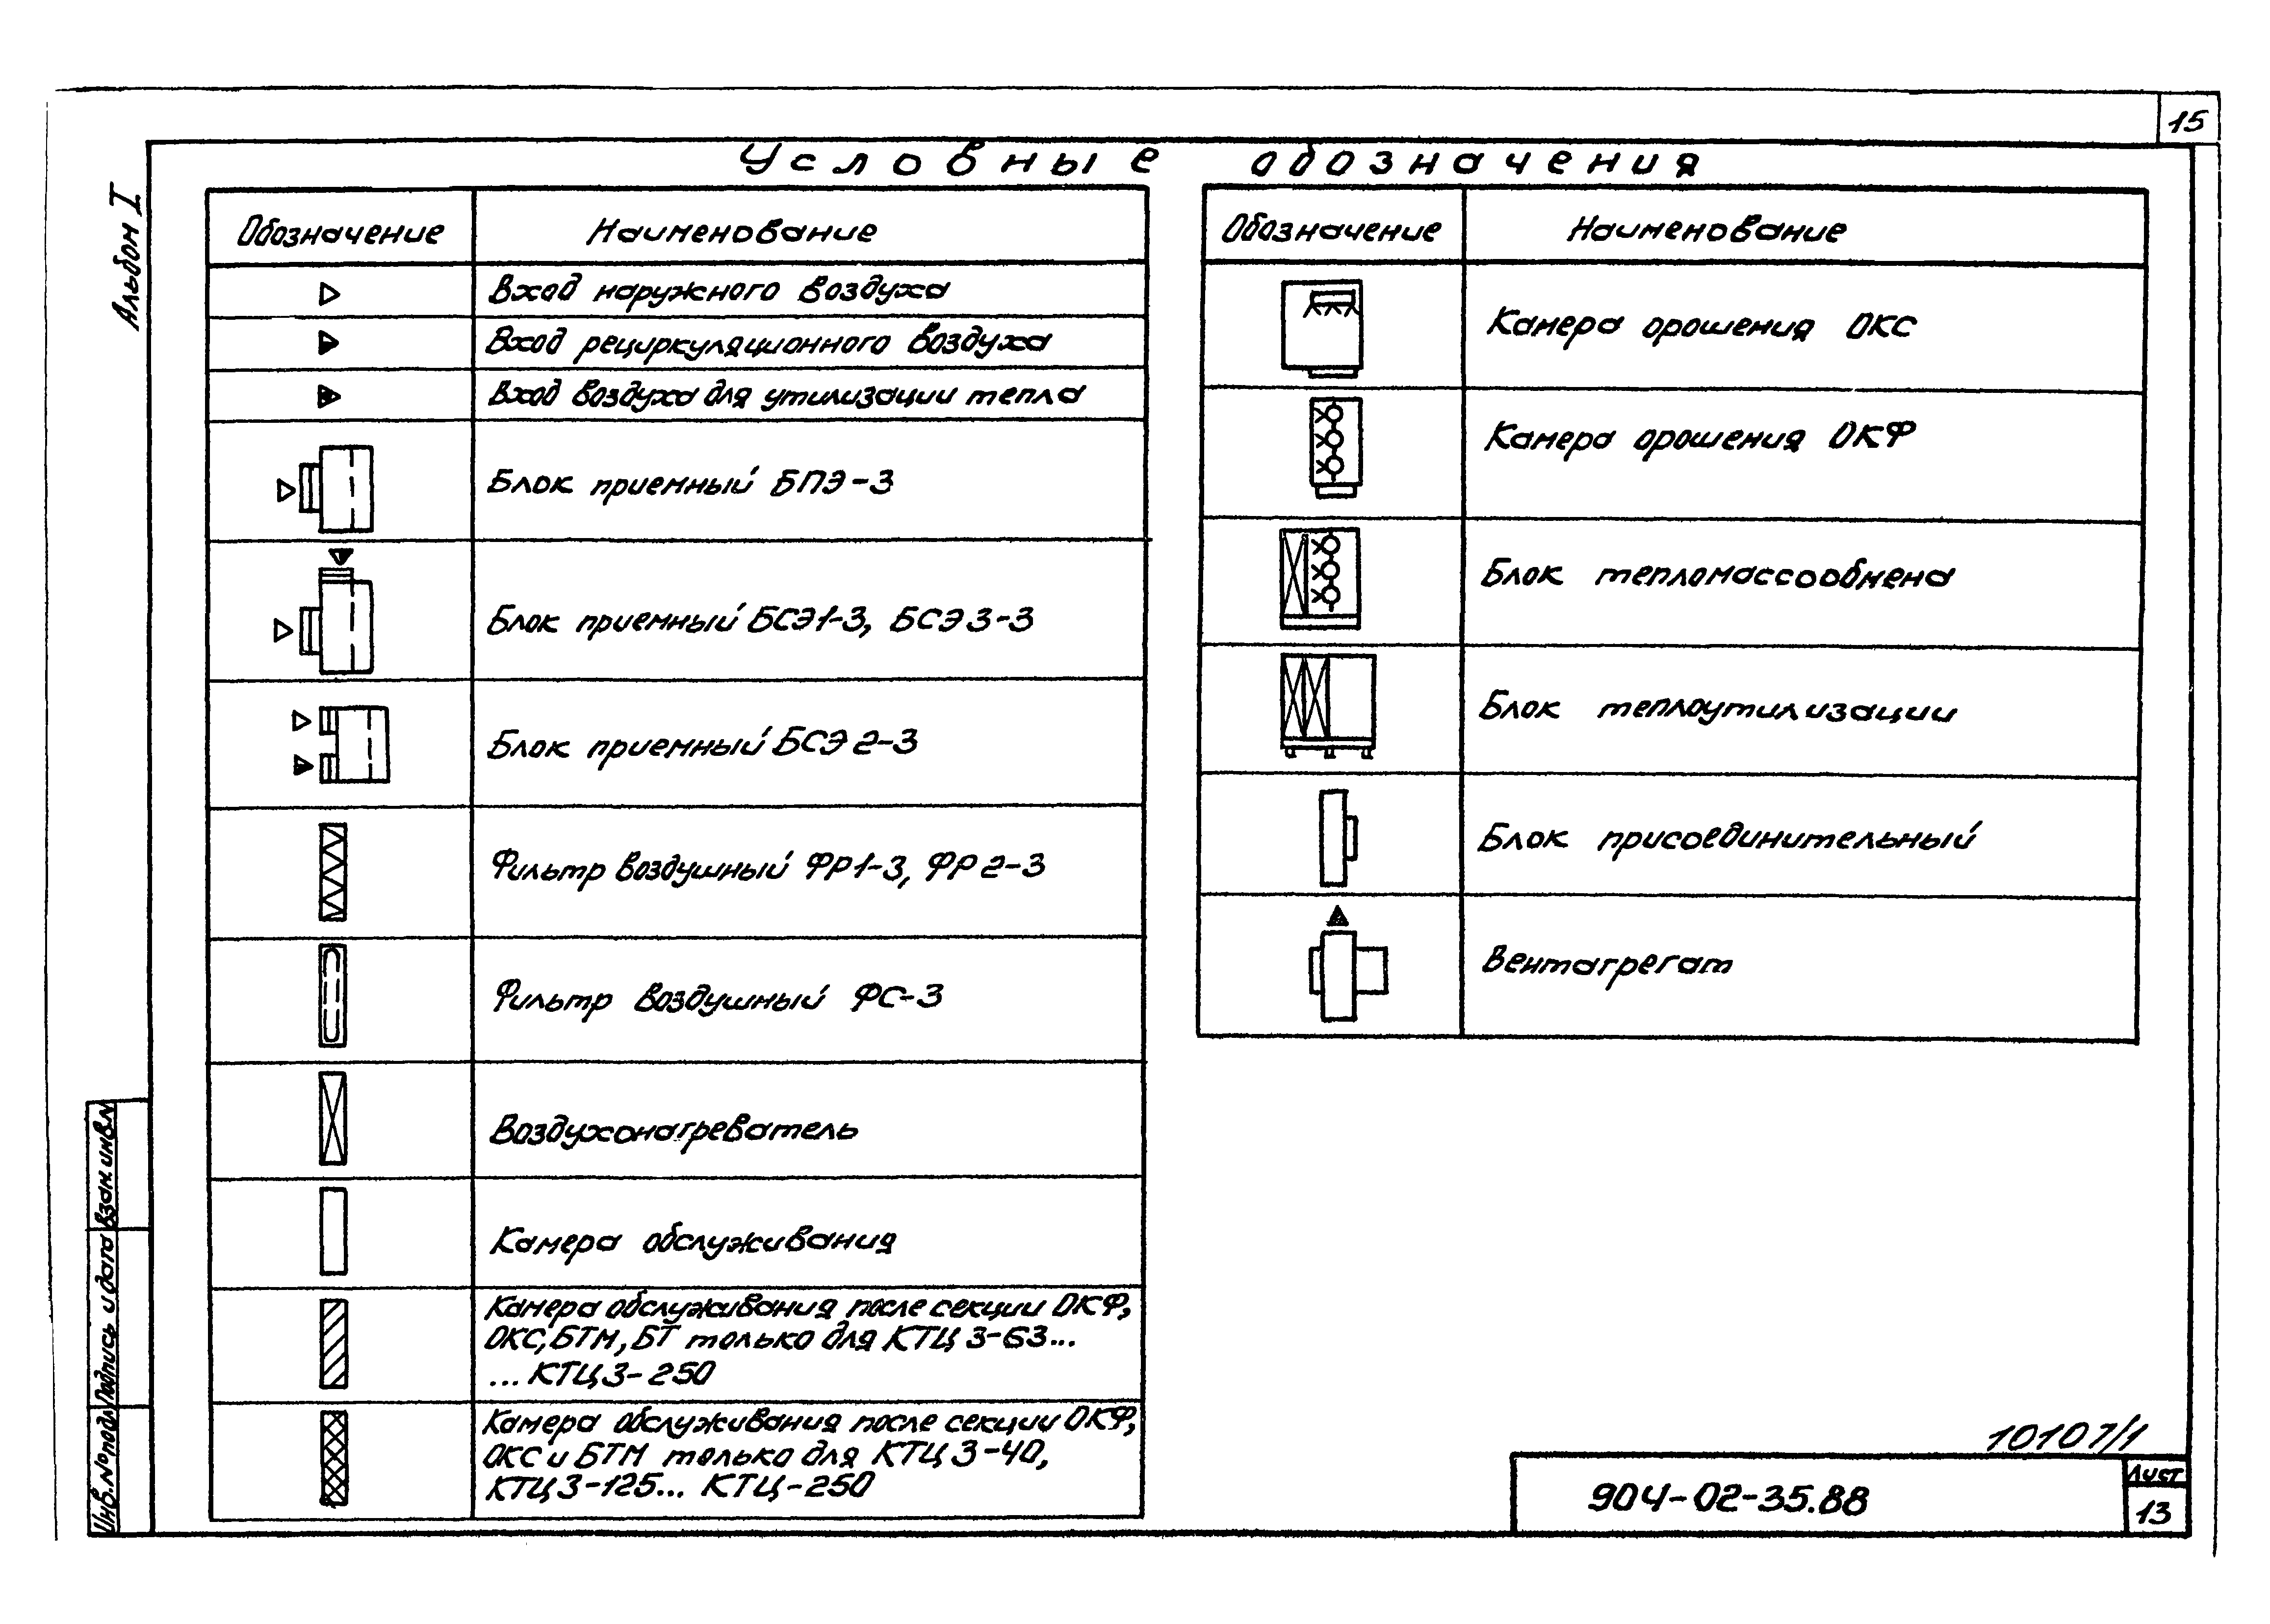 15
Альбом I
Условные обозначения
Обозначение Наименование
Вход наружного воздуха
Вход рециркуляционного воздуха
Вход воздуха для утилизации тепла
Блок приемный БПЭ-3
Блок приемный БСЭ1-3, БСЭ3-3
Блок приемный БСЭ2-3
Фильтр воздушный ФР1-3, ФР2-3
Фильтр воздушный ФС-3
Воздухонагреватель
Камера обслуживания
Камера обслуживания после секции ОКФ,
ОКС, БТМ, БТ только для КТЦ3-63...
...КТЦ3-250
Камера обслуживания после секции ОКФ,
ОКС и БТМ только для КТЦ3-40,
КТЦ3-125... КТЦ-250
Обозначение Наименование
Камера орошения ОКС
Камера орошения ОКФ
Блок тепломассообмена
Блок теплоутилизации
Блок присоединительный
Вентагрегат
Инв.№подл Подпись и дата Взам инв.N
10107/1
904-02-35.88
Лист
13